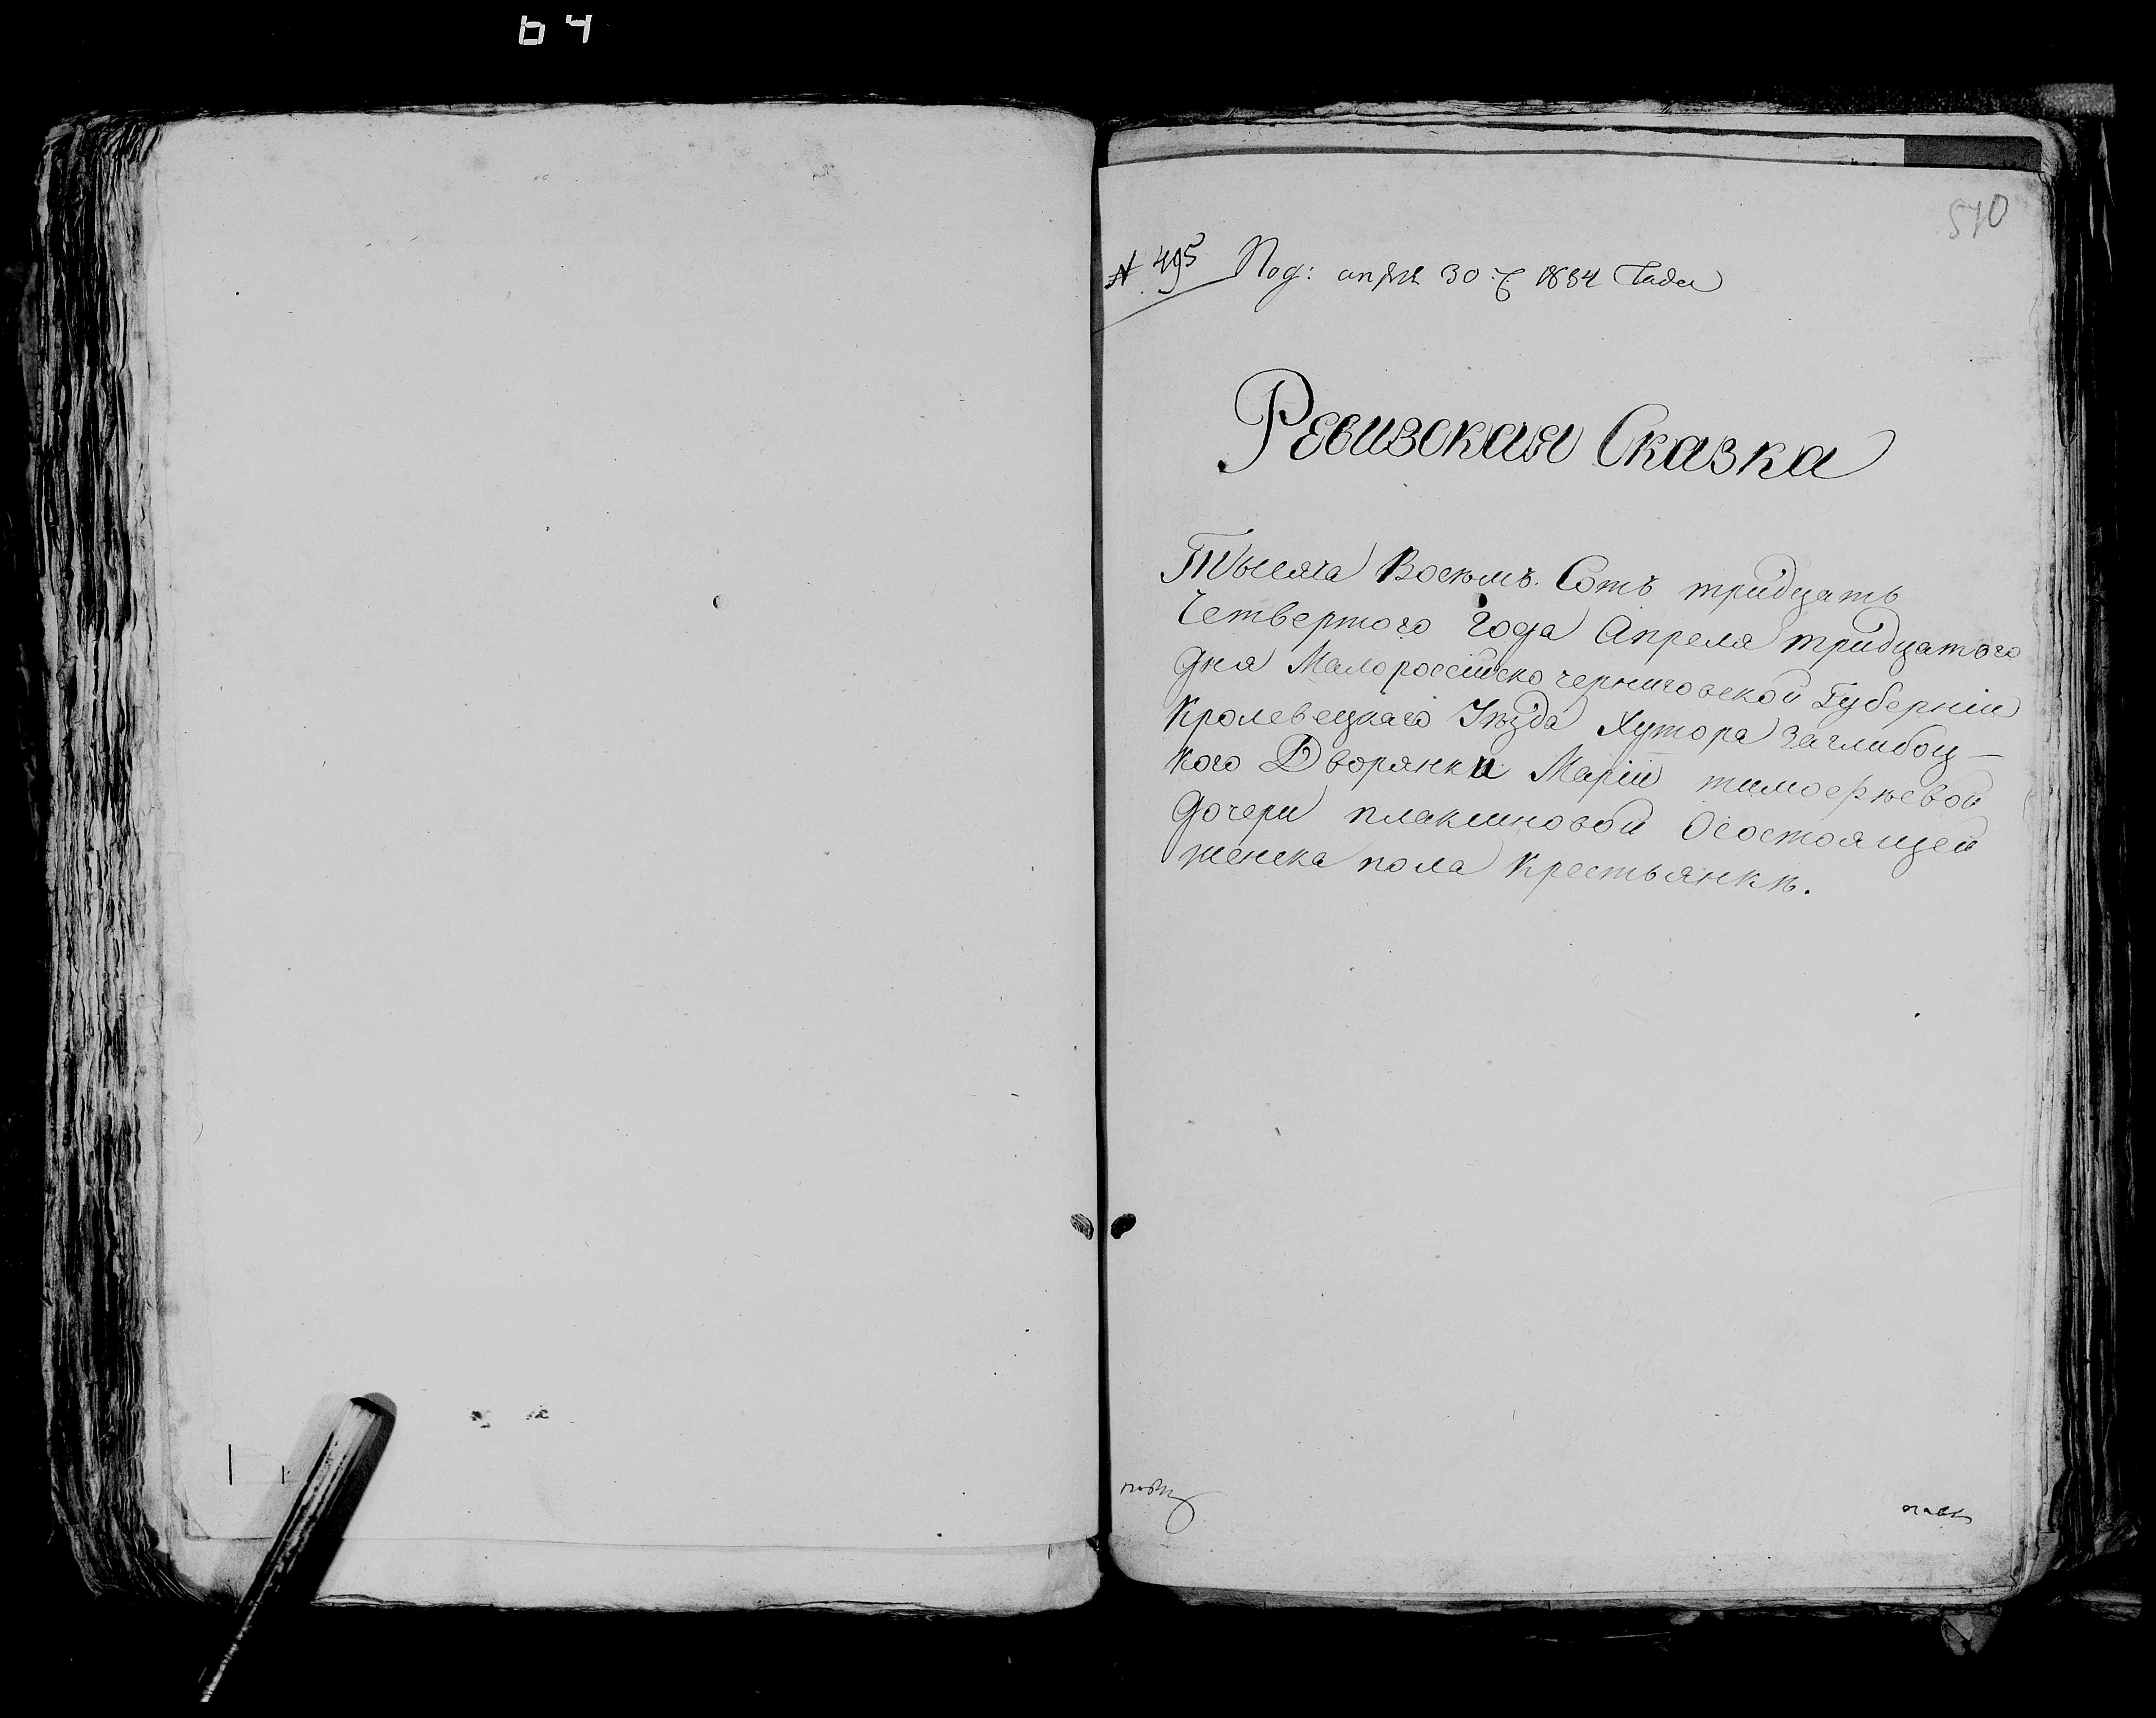 64
510
№ 495 Под: апрля 30: 1834 Года
Ревизская Сказка
Тысяча Восемъ Сотъ тридцать
Четвертого Года Апреля тридцатого
дня Малороссійско черниговской Губерніи
Кролевецкаго Уѣзда Хутора Заглибоц-
кого Дворянки Маріи тимофѣевой
дочери плаксиновой Осостоящей
женска пола крестьянкѣ.